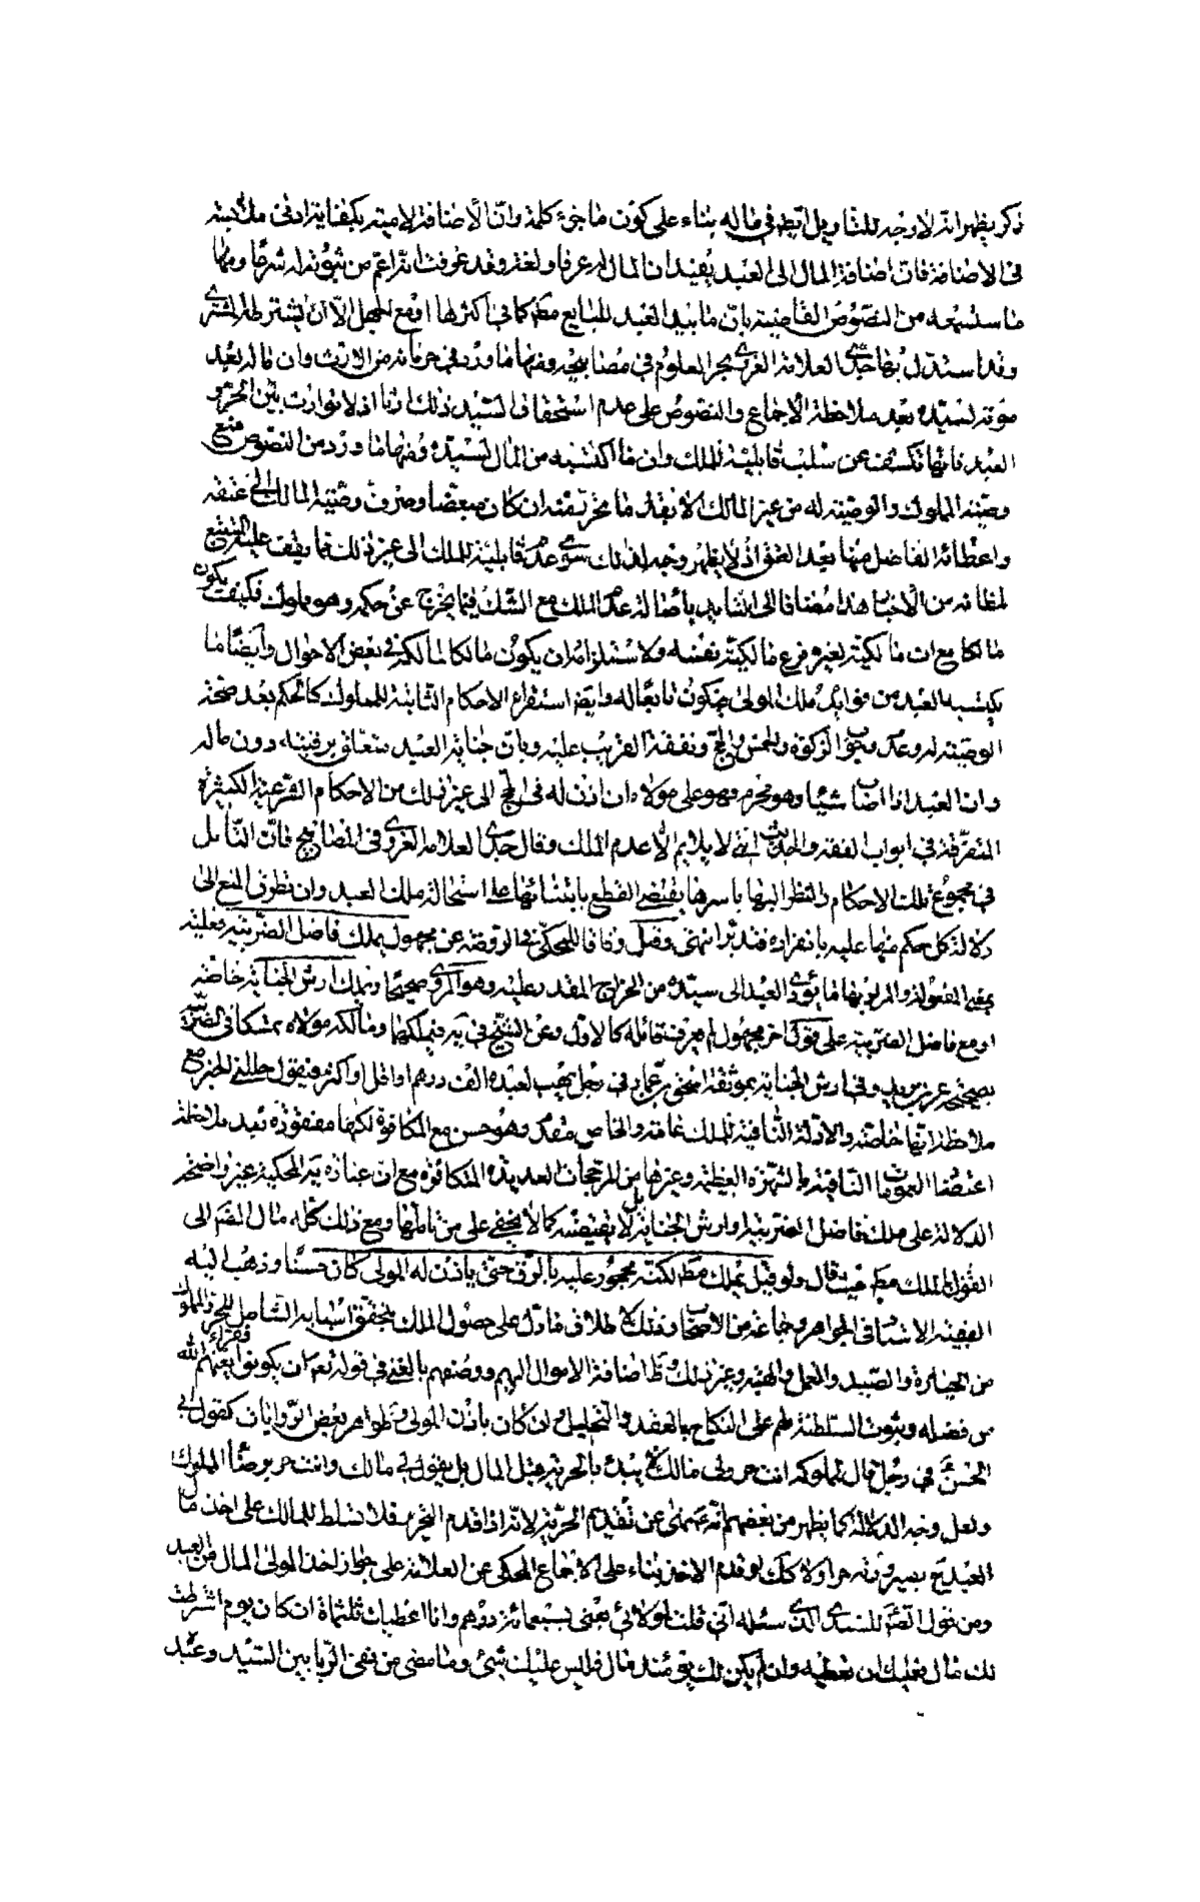 ذكر يظهر انّه لا وجه للتأويل ايضا في ماله بناء على كون ما جزئ كلمة وانّ الأضافة لامية يكفيها ادنى ملابسة
في الاضافة فانّ اضافة المال الى العبد يُفيد ان المال له عرفا ولغة وقد عرفت انّه اعمّ من ثبوته له شرعًا ومنها
ما ستسمعه من النصّوص القاضية بانّ ما بيد العبد للبايع مط كما في اكثرها او مع الجهل الّا ان يشترط المشتري
وقد استدلّ بها جدّي العلامة الغروي بحر العلوم في مصابيحه ومنها ما ورد في حرمانه من الارث وان ماله بعد
موته لسيّده بعد ملاحظة الاجماع والنصوص على عدم استحقاق السّيد ذلك ارثا اذ لا توارث بين الحرّ و
العبد فانّها تكشف عن سلب قابليته للملك وان ما اكتسبه من المال لسيّده ومنها ما ورد من النصوص منع
وصيّة المملوك والوصيّة له من غير المالك الا بقدر ما تحرّر منه ان كان مبعّضا وصرف وصيّة المالك الى عتقه
واعطائه الفاضل منها بعد العتق اذ لا يظهر وجه لذلك سوى عدم قابليته للملك الى غير ذلك مما يقف عليه المتتبع
لمظانه من الأخبار هذا مضافا الى التأييد بأصالة عدم الملك مع الشك فيما يخرج عن حكمه وهو مملوك فكيف يكون
مالكا مع ان مالكيّته لغيره فرع مالكيّة نفسه ولاستلزامه ان يكون مالكا لمالكه في بعض الاحوال وأيضًا ما
يكتسبه العبد من فوائد ملك المولى فيكون تابعًا له وايضا استقراء الاحكام الثابتة للمملوك كالحكم بعد صحّة
الوصيّة له وعدم وجوب الزكوة والخمس والحج ونفقة القريب عليه وبانّ جناية العبد تتعلق برقبته دون ماله
وانّ العبد اذا اصاب شيئا وهو محرم وهو على مولاه ان اذن له في الحج الى غير ذلك من الاحكام الشرعيّة الكثيرة
المتفرّقة في ابواب الفقه والحديث انه لا يلايم الّا عدم الملك وقال جدّي العلامة الغروي في المصابيح فانّ التأمل
في مجموع تلك الاحكام والنظر اليها باسرها يقتضي القطع بابتنائها على استحالة ملك العبد وان تطرق المنع الى
دلالة كل حكم منها عليه بانفراده فتدبّر انتهى وقيل وفاقا للمحكيّ في الروضة عن مجهول يملك فاضل الضّريبة وعليه
بمعنى المفعولة والمراد بها ما يؤدّي العبد الى سيّده من الخراج المقدر عليه وهو المروي صحيحًا ويملك ارش الجناية خاصّة
او مع فاضل الضريبة على قول آخر مجهول لم يعرف قائله كالاول وعن الشيخ في يه فيملكها وما ملكه مولاه تمسكا في الضريبة
بصحيح عمر بن يزيد وفي ارش الجناية بموثقة اسحق بن عمار في رجل يهب لعبده الف درهم او اقل او اكثر فيقول حللني الخبر مع
ملاحظة انّها خاصّة والادلة النّافية للملك عامة والخاص مقدّم وهو حسن مع المكافؤة لكنها مفقودة بعد ملاحظة
اعتضاد العمومات النّافية بالشهرة العظيمة وغيرها من المرجحات العديدة المتكاثرة مع انّ عبارة يه المحكية غير واضحة
الدلالة على ملك فاضل الضريبة وارش الجناية بل لا يقتضيه كما لا يخفى على من تأملها ومع ذلك كلّه مال الصم الى
القول بالملك مط حيث قال ولو قيل يملك مط لكنّه محجور عليه بالرق حتى يأذن له المولى كان حسنًا وذهب اليه
الفقيه الاستاد في الجواهر وجماعة من الاصحاب وذلك لاطلاق ما دلّ على حصول الملك بتحقق اسبابه الشامل للحر والمملوك
من الحيازة والصّيد والعمل والهبة وغير ذلك وظ اضافة الاموال اليهم ووصفهم بالغنى في قوله تعم ان يكونوا فقراء يغنهم الله
من فضله وثبوت السّلطنة لهم على النكاح بالعقد والتحليل وان كان باذن المولى وظواهر بعض الرّوايات كقول ابي
الحسن ع في رجل قال لمملوكه انت حر ولي مالك لا يبدء بالحرية قبل المال بل يقول لي مالك وانت حر برضا المملوك
ولعل وجه الدلالة كما يظهر من بعضهم انّه نهى عن تقديم الحرّية لانّه اذا قدم التحرير فلا تسلط للمالك على اخذ مال
العبد ح بصيرورته حرا ولا كك لو قدم الاخذ بناء على الاجماع المحكي عن العلامة على جواز اخذ المولى المال من العبد
ومن قول الصّ للسندي الذي سئله انّي قلت لمولائي بعني بسبعمائة درهم وانا اعطيك ثلثمائة ان كان يوم اشترطت
لك مال فعليك ان تعطيه وان لم يكن لك يومئذ مال فليس عليك شئ وما مضى من نفي الرّبا بين السّيد وعبد